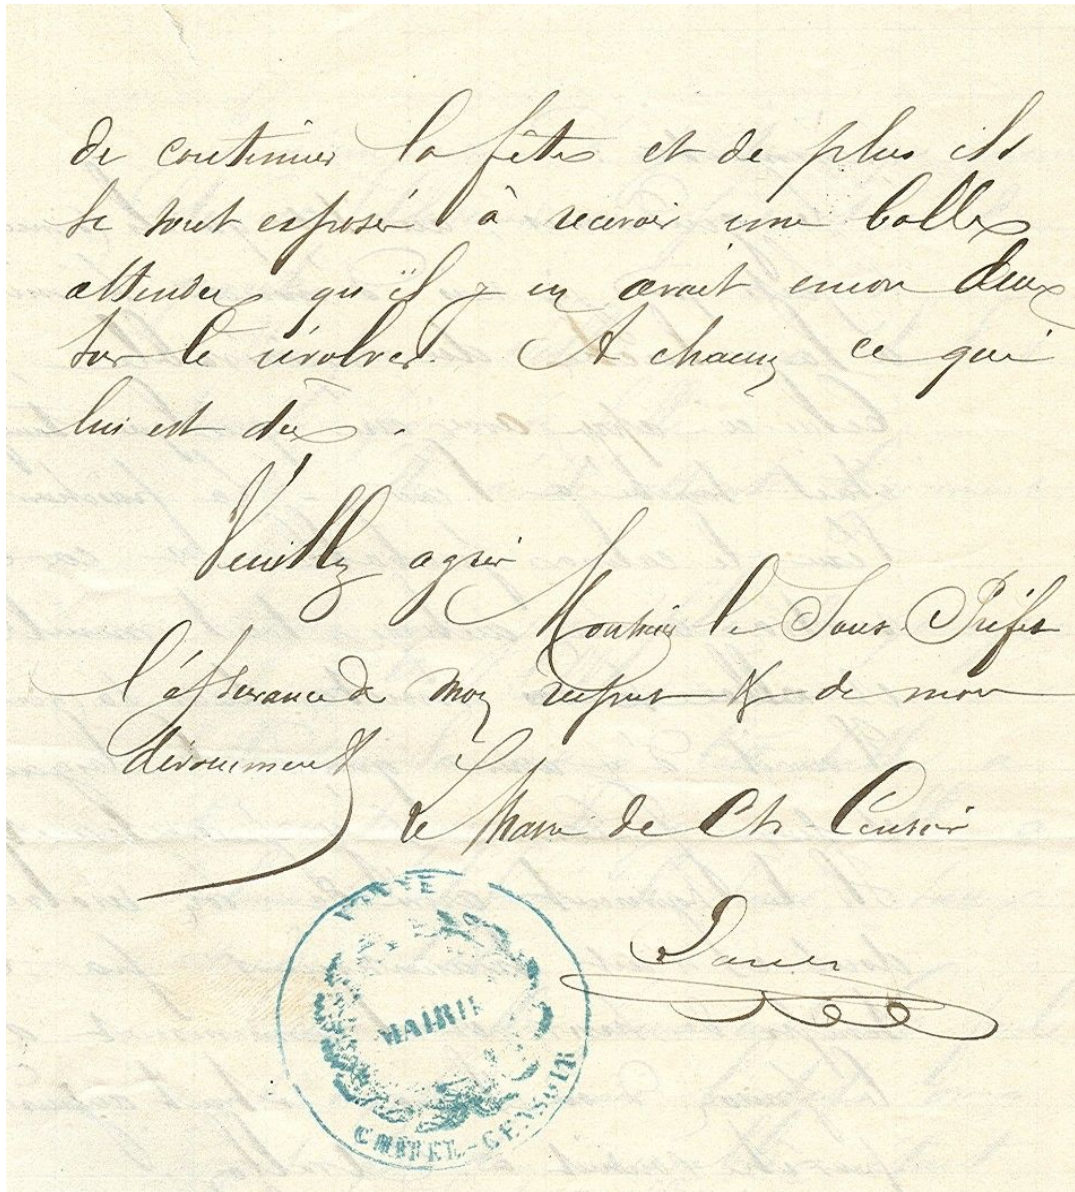 de continuer la fête et de plus ils
se sont exposé à recevoir une balle
attendu qu'il y en avait encor deux
sur le révolver. A chacun ce qui
lui est dû.
Veuillez agréer
Monsieur le Sous-Préfet
l'assurance de mon respect & de mon
dévouement
Le Maire de Ch-Censoir
YONNE
MAIRIE
CHATEL-CENSOIR